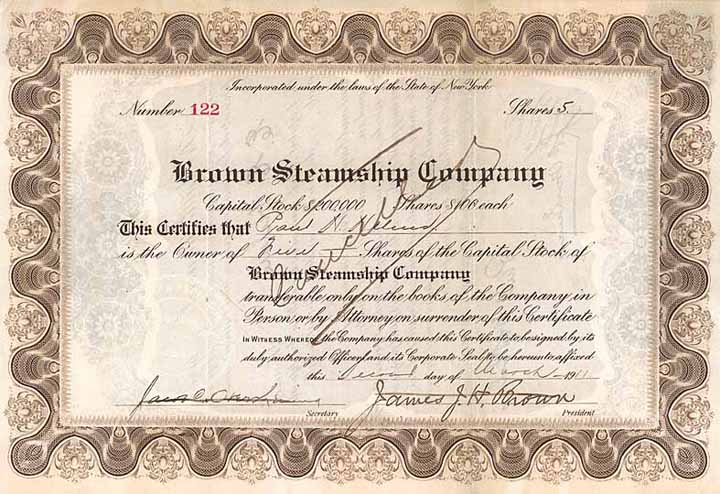 Incorporated under the laws of the State of New York
Number 122 Shares 5
Brown Steamship Company
Capital Stock $200,000 Shares $100 each
This Certifies that Paul H.
is the Owner of Five Shares of the Capital Stock of
Brown Steamship Company
transferable only on the books of the Company, in
Person or by Attorney on surrender of this Certificate
IN WITNESS WHEREOF, the Company has caused this Certificate to be signed by its
duly authorized Officers and its Corporate Seal to be hereunto affixed
this Second day of March 1911
James J. H. Brown
Secretary President
Cancelled